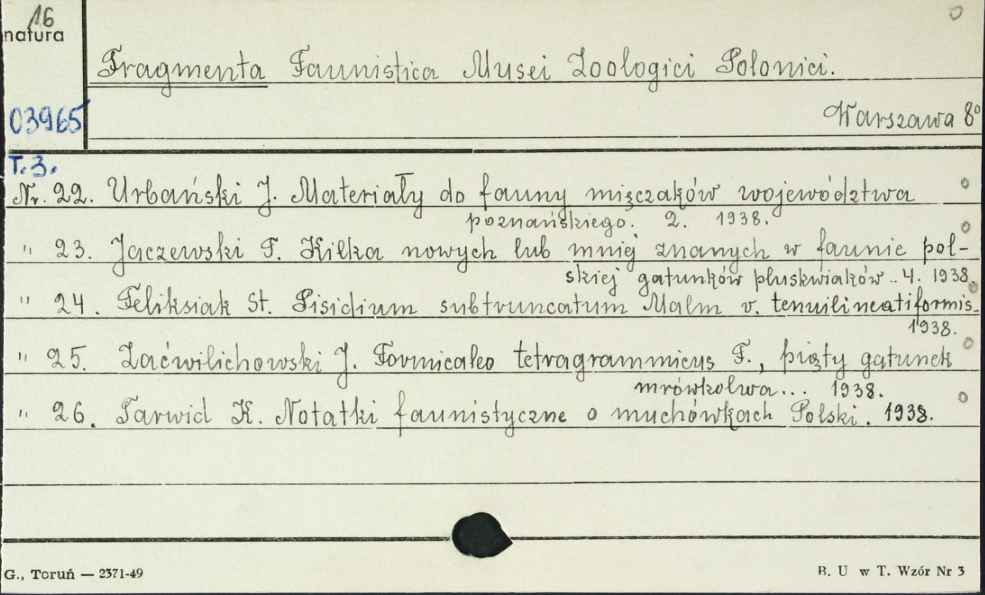 16
natura
Fragmenta Faunistica Musei Zoologici Polonici.
03965
Warszawa 8°
T. 3.
Nr. 22. Urbański J. Materiały do fauny mięczaków województwa
poznańskiego. 2. 1938.
" 23. Jaczewski T. Kilka nowych lub mniej znanych w faunie pol-
skiej gatunków pluskwiaków.. 4. 1938.
" 24. Feliksiak St. Pisidium subtruncatum Malm v. tenuilineatiformis.
1938.
" 25. Zaćwilichowski J. Formicaleo tetragrammicus F., piąty gatunek
mrówkolwa... 1938.
" 26. Tarwid K. Notatki faunistyczne o muchówkach Polski. 1938.
G., Toruń — 2371-49
B. U w T. Wzór Nr 3